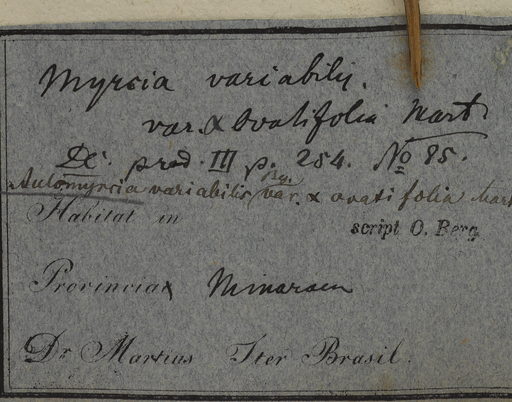 Myrcia variabilis.
var. α ovatifolia Mart.
DC. prod. III p. 254. No 85.
Aulomyrcia variabilis Bg. var. α ovatifolia Mart
script O. Berg
Habitat in
Provincia Minarum
Dr Martius Iter Brasil.